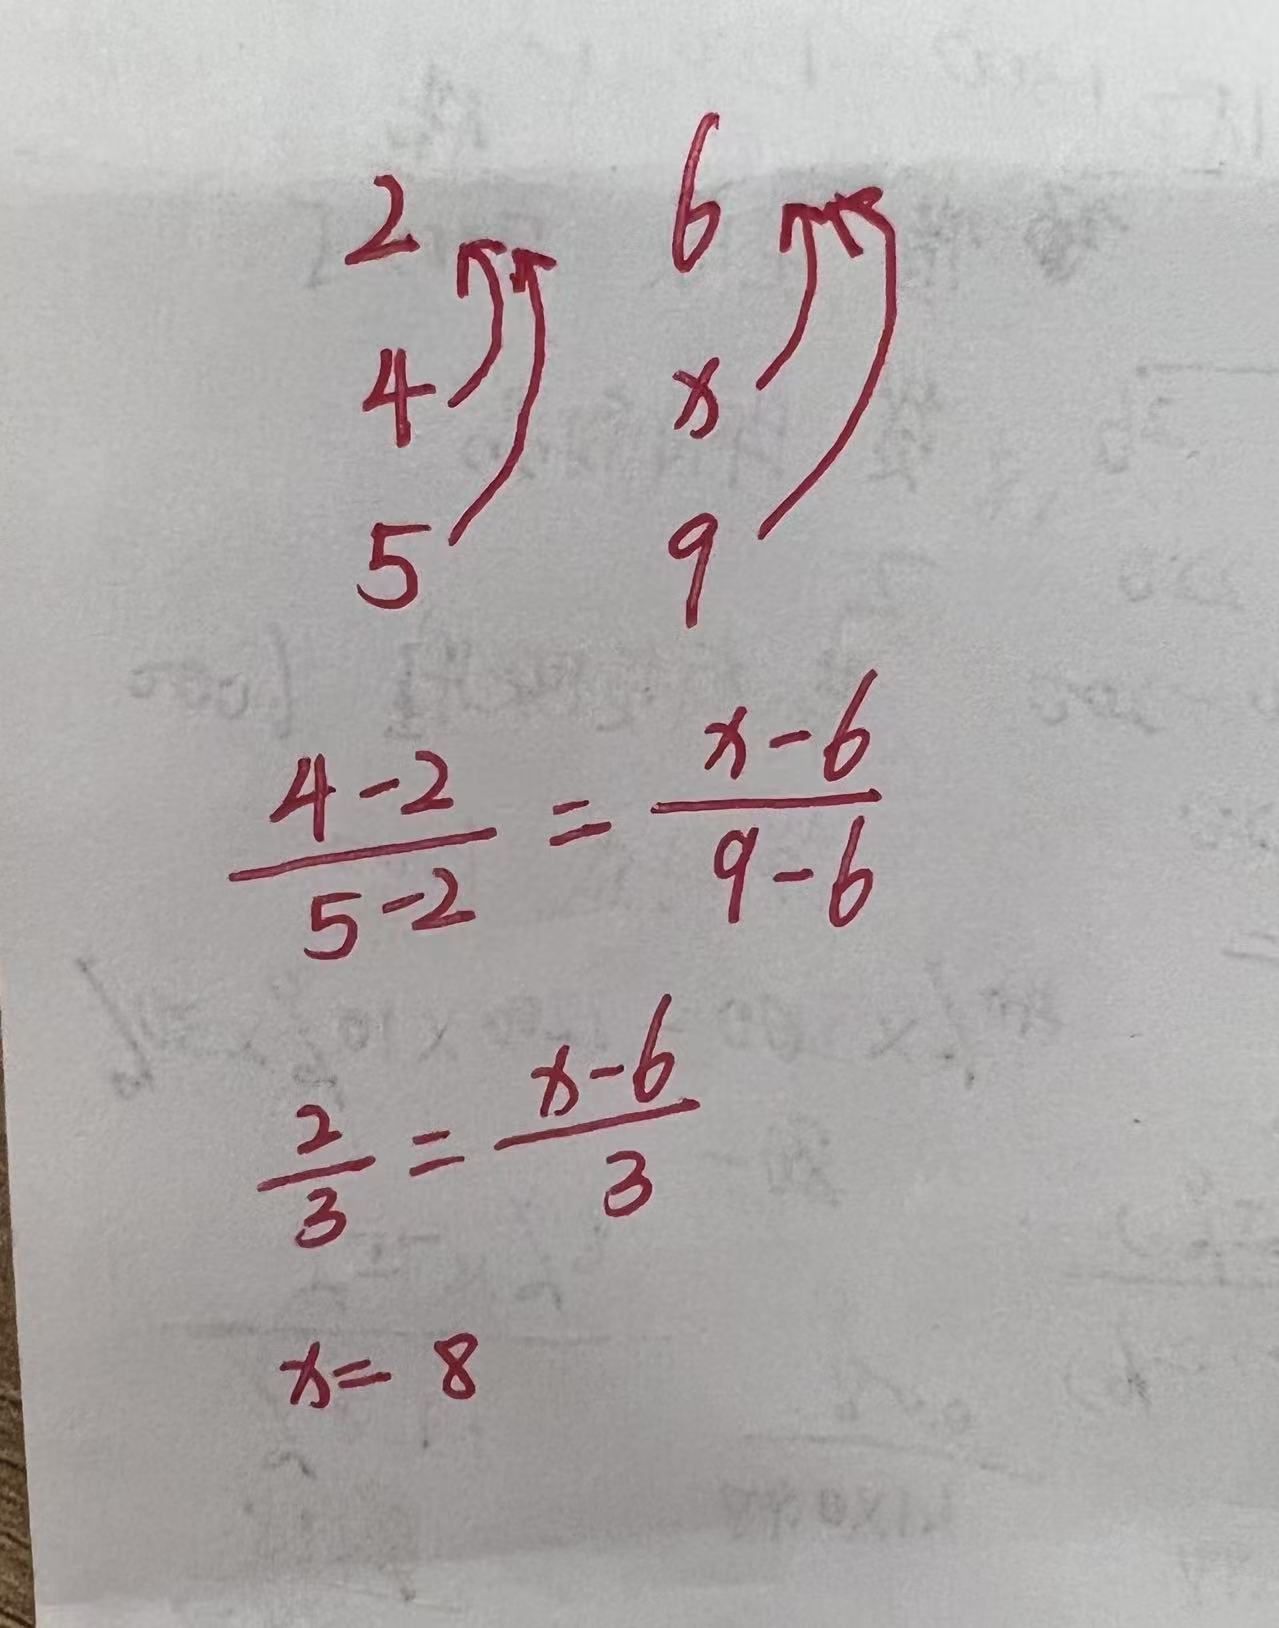 2 6
4 x
5 9
4-2 x-6
— = —
5-2 9-6
2 x-6
— = —
3 3
x= 8